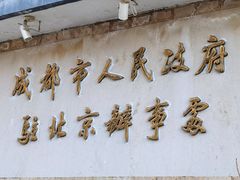 成都市人民政府
驻北京办事处